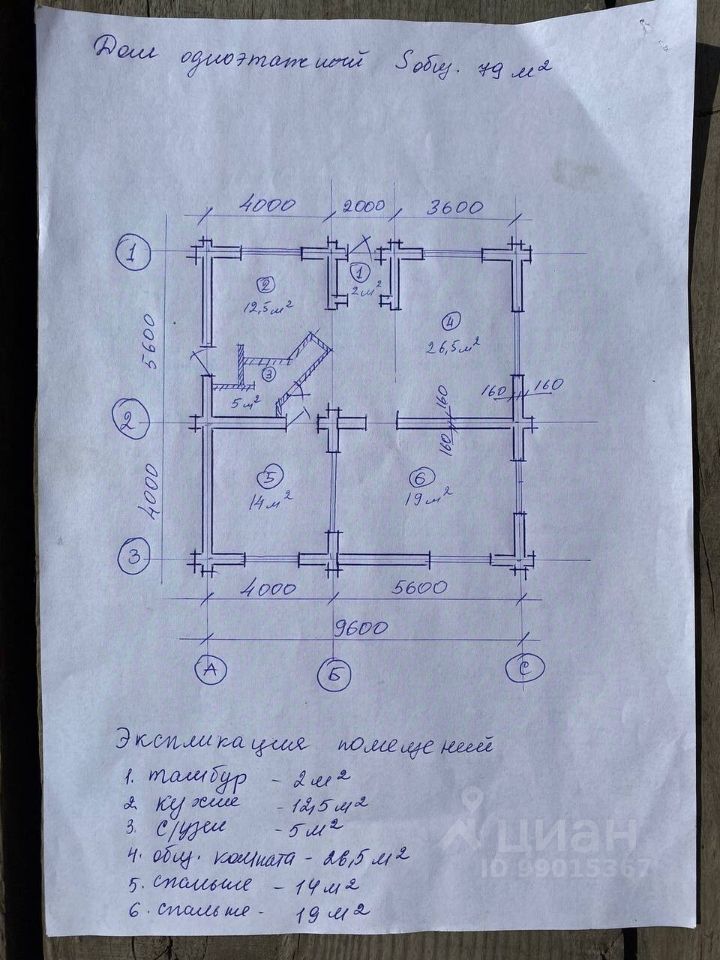 Дом одноэтажный Sобщ. 79 м²
4000 2000 3600
1
1
2 м²
2
12,5 м²
4
26,5 м²
5600
3
5 м²
160 160
160
160
2
4000
5
14 м²
6
19 м²
3
4000 5600
9600
А Б С
Экспликация помещений
1. тамбур - 2 м²
2. кухне - 12,5 м²
3. с/узел - 5 м²
4. общ. комната - 26,5 м²
5. спальне - 14 м²
6. спальне - 19 м²
циан
ID 99015367